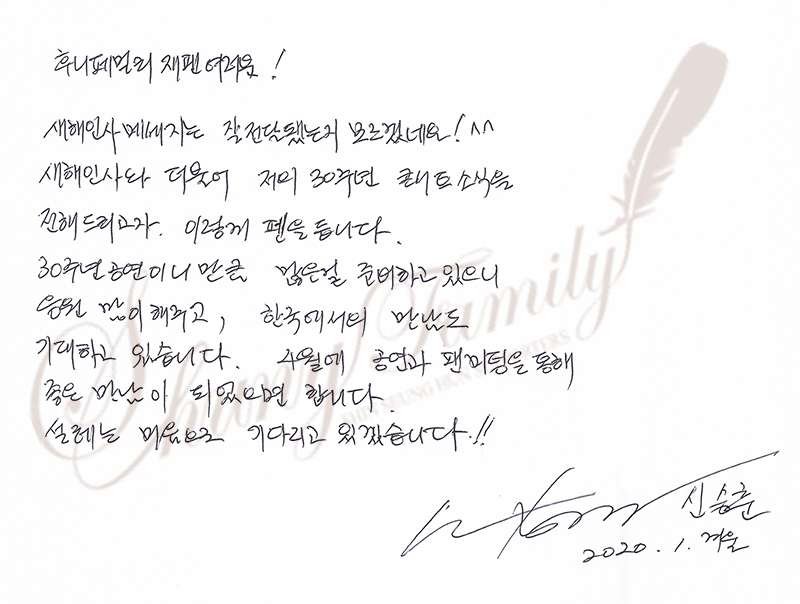 후니패밀리 재팬 여러분!
새해인사 메세지는 잘 전달됐는지 모르겠네요! ^^
새해인사와 더불어 저의 30주년 콘서트 소식을
전해드리고자. 이렇게 펜을 듭니다.
30주년 공연이니 만큼 많은걸 준비하고 있으니
응원 많이 해주고, 한국에서의 만남도
기대하고 있습니다. 4월에 공연과 팬미팅을 통해
좋은 만남이 되었으면 합니다.
설레는 마음으로 기다리고 있겠습니다.!!
신승훈
2020. 1. 겨울
Shuny Family
SHIN SEUNG HUN SUPPORTERS